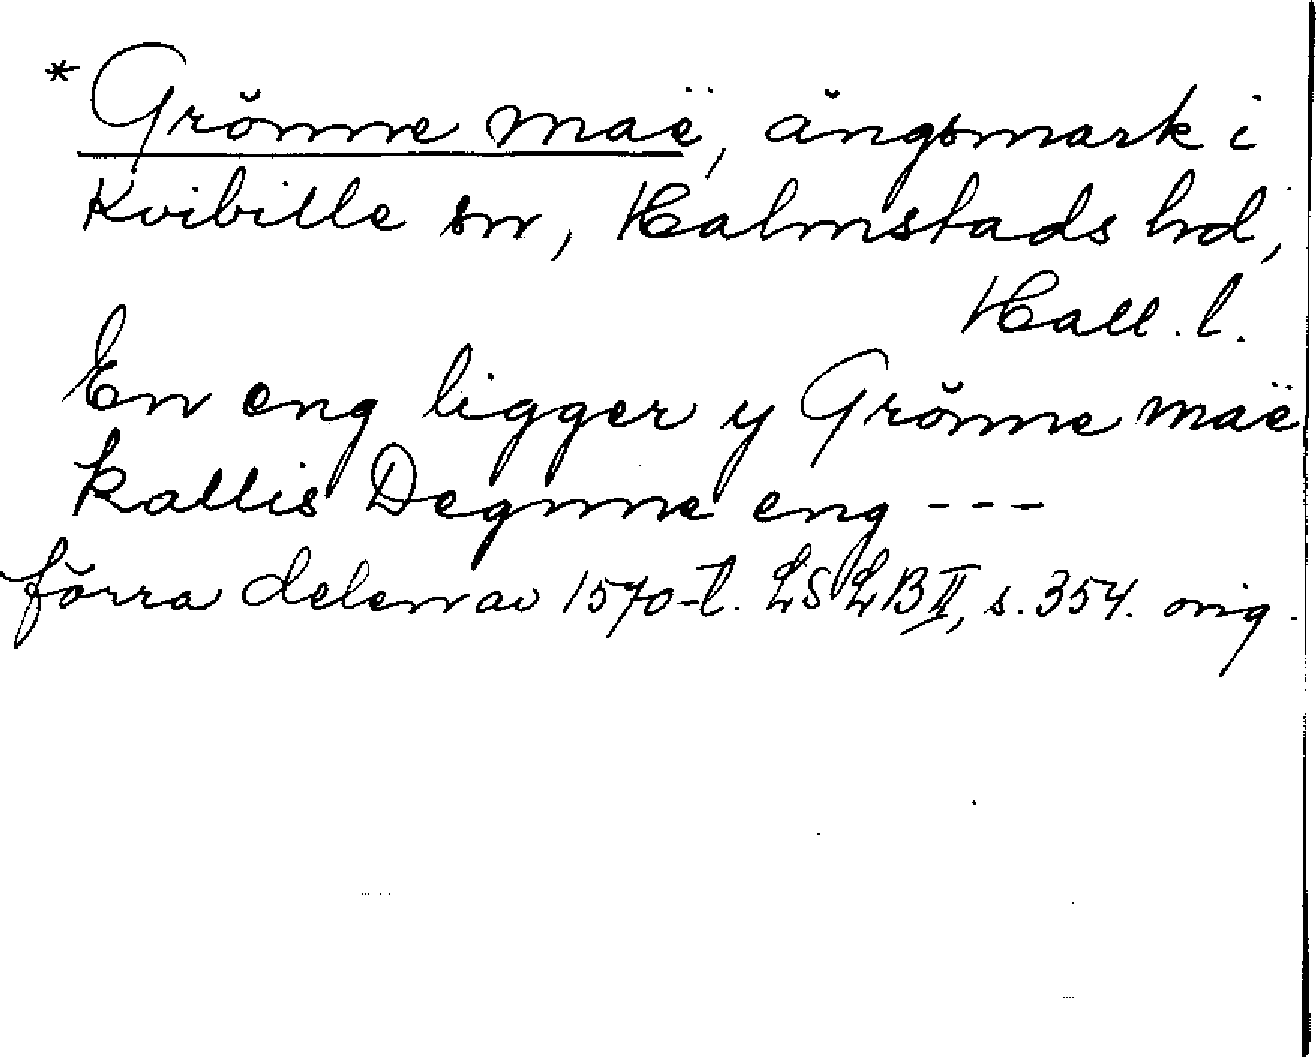 *Grönne maë, ängsmark i
Kvibille sn, Halmstads hd,
Hall. l.
En eng ligger y Grönne maë
kallis Degnne eng ---
förra delen av 1570-t. LSLB II, s. 354. orig.